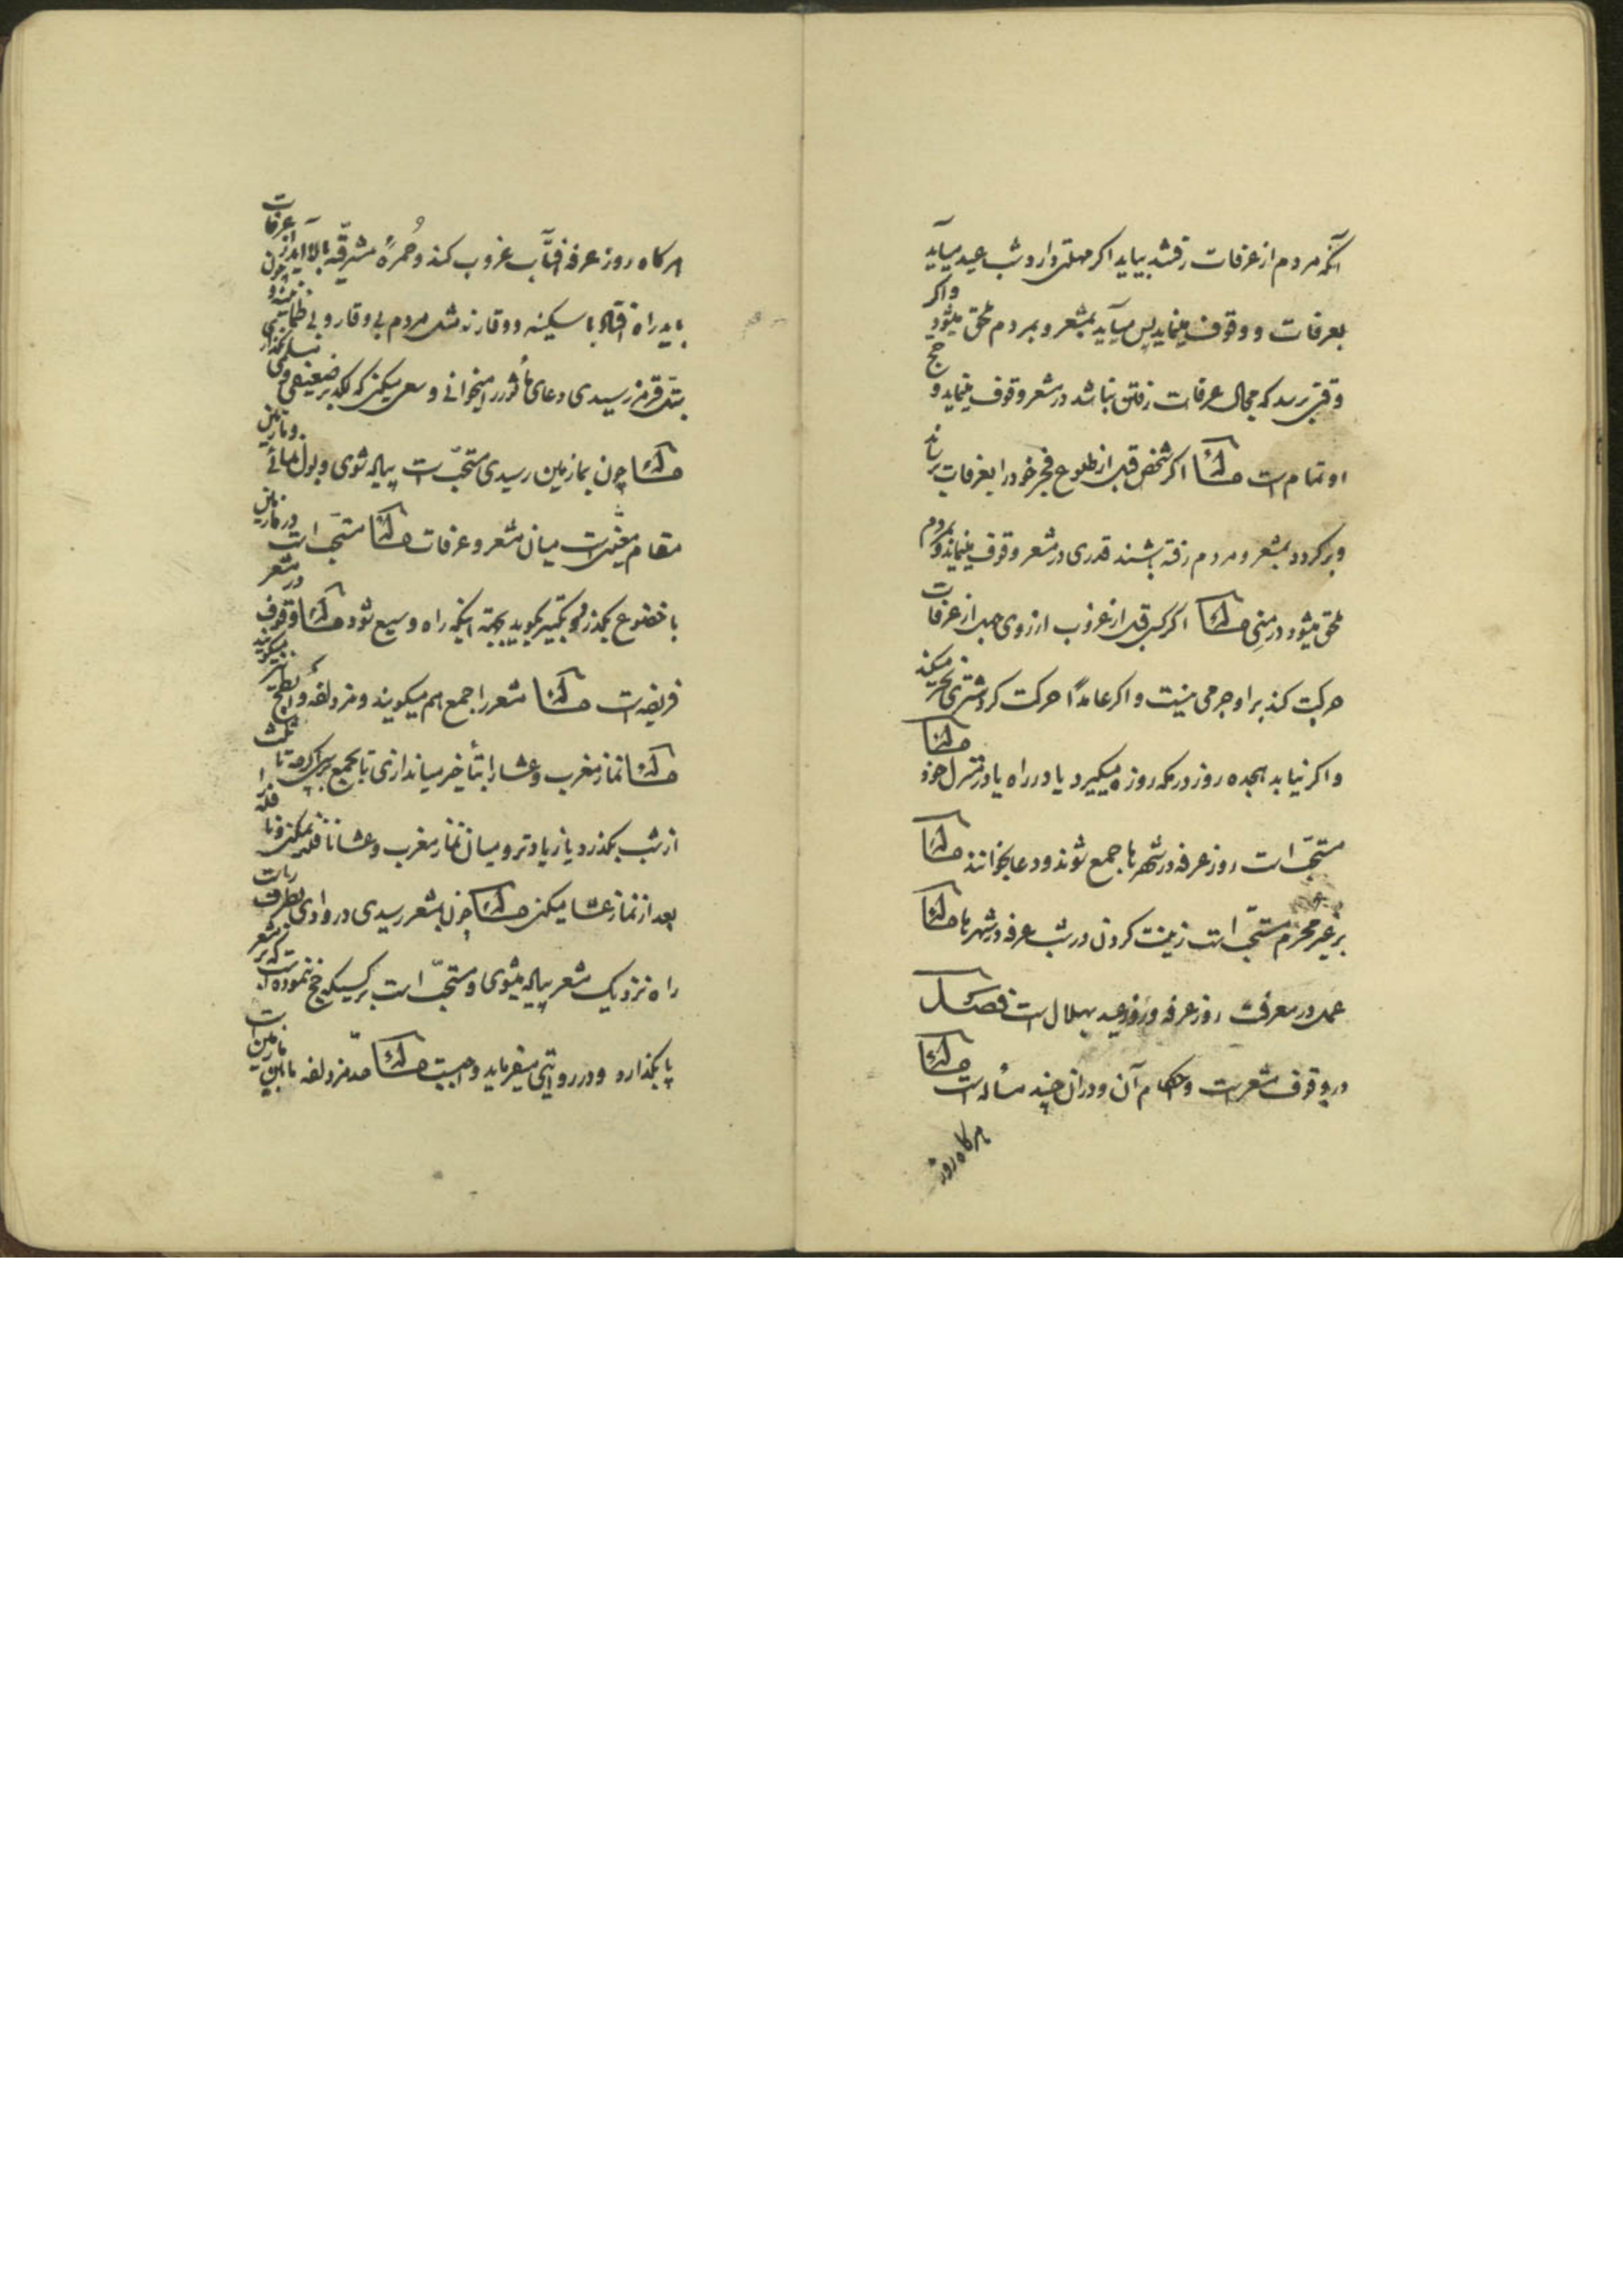 آنکه مردم از عرفات رفتند بیاید اکر مهلتی دارد شب عید میآید
بعرفات و وقوف مینماید پس میآید بمشعر و بمردم ملحق میشود واکر
وقتی رسد که مجال عرفات رفتن نباشد در مشعر وقوف مینماید و حج
او تمام است مسئله اکر شخص قبل از طلوع فجر خود را بعرفات برساند
و برکردد بمشعر و مردم رفته باشند قدری در مشعر وقوف مینماید و بمردم
ملحق میشود در منی مسئله اکر کسی قبل از غروب از روی جهل از عرفات
حرکت کند بر او جرمی نیست و اکر عامداً حرکت کرد شتری نحر میکند
و اکر نیابد هجده روز در مکه روزه میکیرد یا در راه یا در منزل خود مسئله
مستحبّ است روز عرفه در شهرها جمع شوند و دعا بخوانند مسئله
بر غیر محرم مستحبّ است زینت کردن در شب عرفه در شهرها مسئله
عمل در معرفت روز عرفه و روز عید بهلال است فصل
در وقوف مشعر است و احکام آن و در آن چند مسأله است مسئله
هرکاه روز
هرکاه روز عرفه آفتاب غروب کند و حُمرهٔ مشرقیّه بالا آید از عرفات
باید راه افتاد با سکینه و وقار نه مثل مردم بی وقار و بی طمأنینه و چون
بتل قرمز رسیدی دعای مأثور را میخوانی و سعی میکنی که لکد بر ضعیفی و
مسئله چون بمازمین رسیدی مستحبّ است پیاله شوی و بول نمائی و مازمین
مقام معیّنی است میان مشعر و عرفات مسئله مستحبّ است در مازمین
با خضوع بکذرد و تکبیر بکوید بجهة اینکه راه وسیع شود مسئله وقوف در مشعر
فریضه است مسئله مشعر را جمع هم میکویند و مزدلفه و ابطح نیز میکویند
مسئله نماز مغرب و عشا را بتأخیر میاندازی تا بجمع برسی اکرچه تا ثلث
از شب بکذرد یا زیادتر و میان نماز مغرب و عشا نافله نمیکنی و نافله را
بعد از نماز عشا میکنی مسئله چون بمشعر رسیدی در وادی بطرف راست
راه نزدیک مشعر پیاله میشوی و مستحبّ است بر کسیکه حج ننموده است که بر مشعر
پا بکذارد و در روایتی میفرماید واجبست مسئله حدّ مزدلفه مابین مازمین است